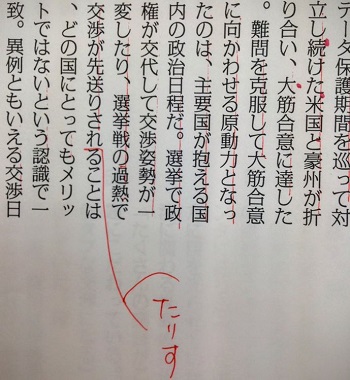 データ保護期間を巡って対
立し続けた米国と豪州が折
り合い、大筋合意に達した
。難問を克服して大筋合意
に向かわせる原動力となっ
たのは、主要国が抱える国
内の政治日程だ。選挙で政
権が交代して交渉姿勢が一
変したり、選挙戦の過熱で
交渉が先送りされることは
、どの国にとってもメリッ
トではないという認識で一
致。異例ともいえる交渉日
たりす